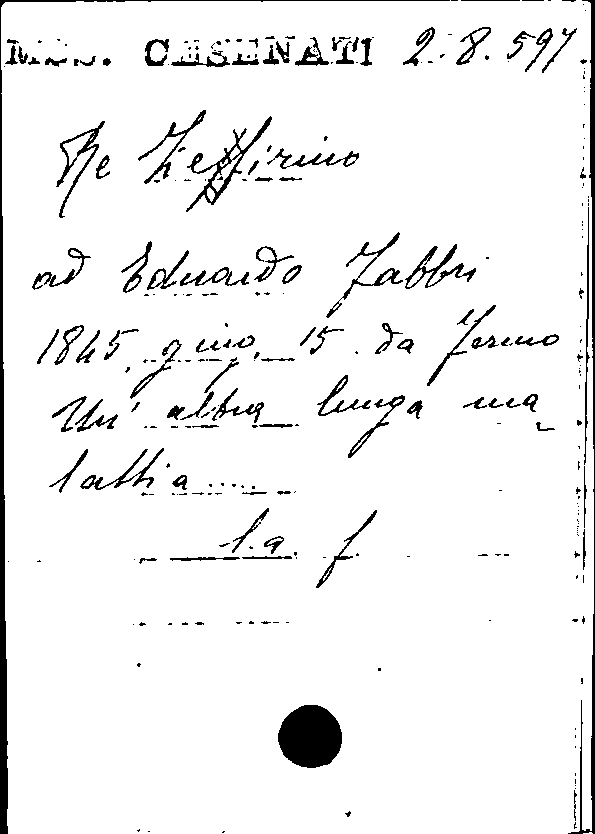 MSS. CESENATI 2.8.597
Re Zeffirino
ad Eduardo Fabbri
1845, giug. 15. da Fermo
Un' altra lunga ma
lattia .....
l.a. f.